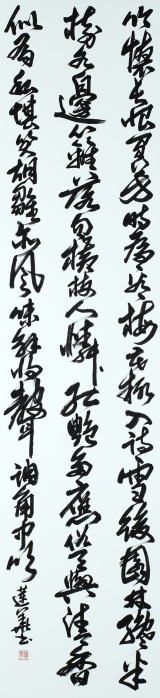 吟懷長恨負芳時為見梅花輒入詩雪後園林纔半
樹水邊籬落忽橫枝人憐紅艷多應俗天與清香
似有私堪笑胡雛亦風味解將聲調角中吹